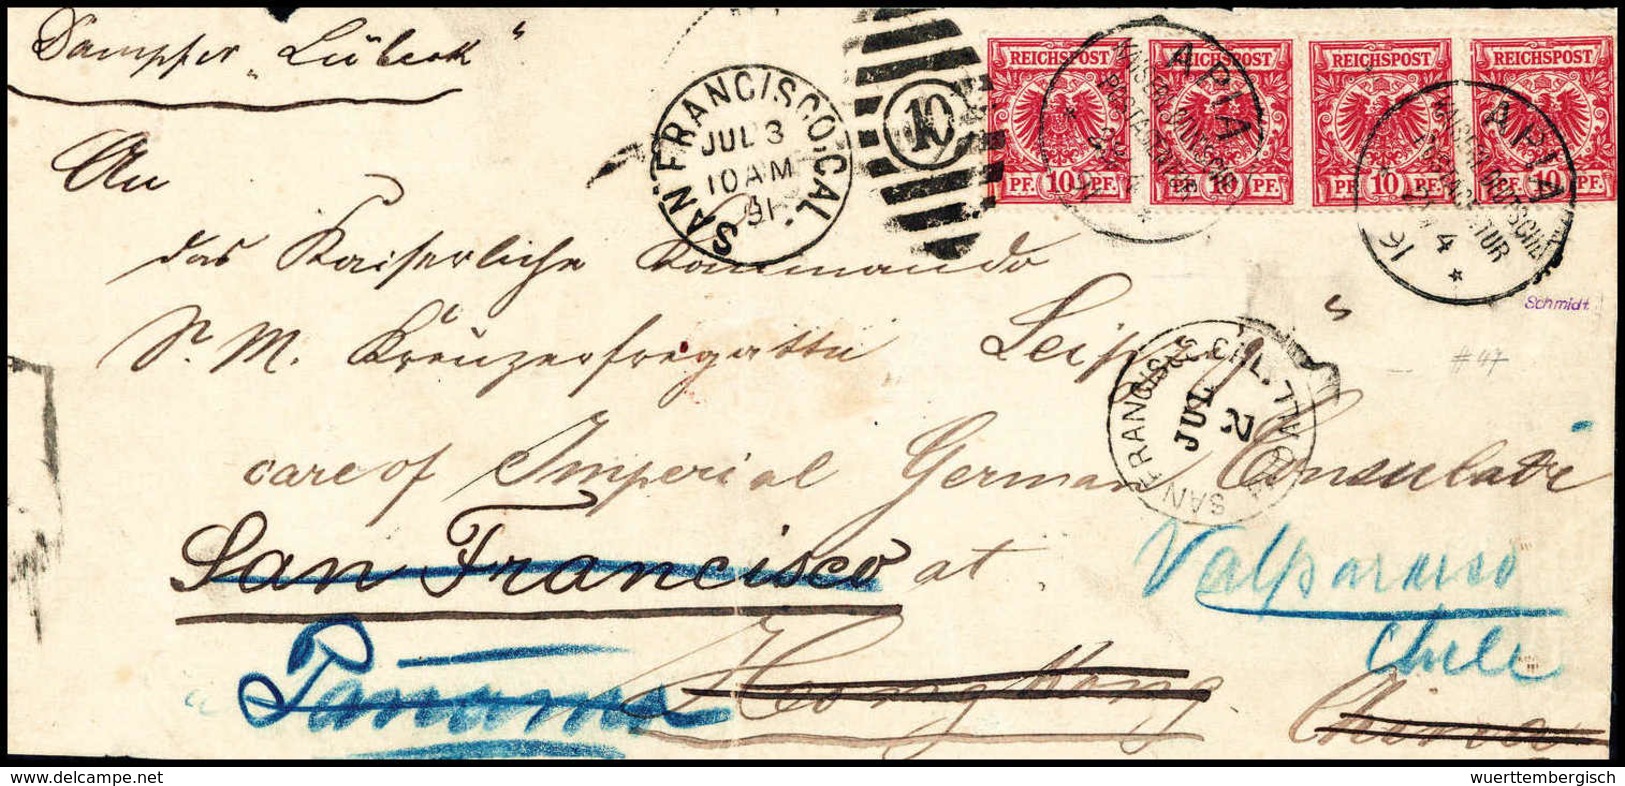 Dampfer „Lübeck“
An
das Kaiserliche Kommando
S. M. Kreuzerfregatte Leipzig“
care of Imperial German Consulate
San Francisco at Valparaiso
Chile
Panama Hongkong
China
SAN FRANCISCO, CAL.
JUL 3
10 AM
91
10
REICHSPOST
PF. 10 PF.
REICHSPOST
PF. 10 PF.
REICHSPOST
PF. 10 PF.
REICHSPOST
PF. 10 PF.
APIA
KAISERL. DEUTSCHE
POSTAGENTUR
APIA
KAISERL. DEUTSCHE
POSTAGENTUR
4
91
SAN FRANCISCO
JUL
2
Schmidt
#47
delcampe.net
wuerttembergisch